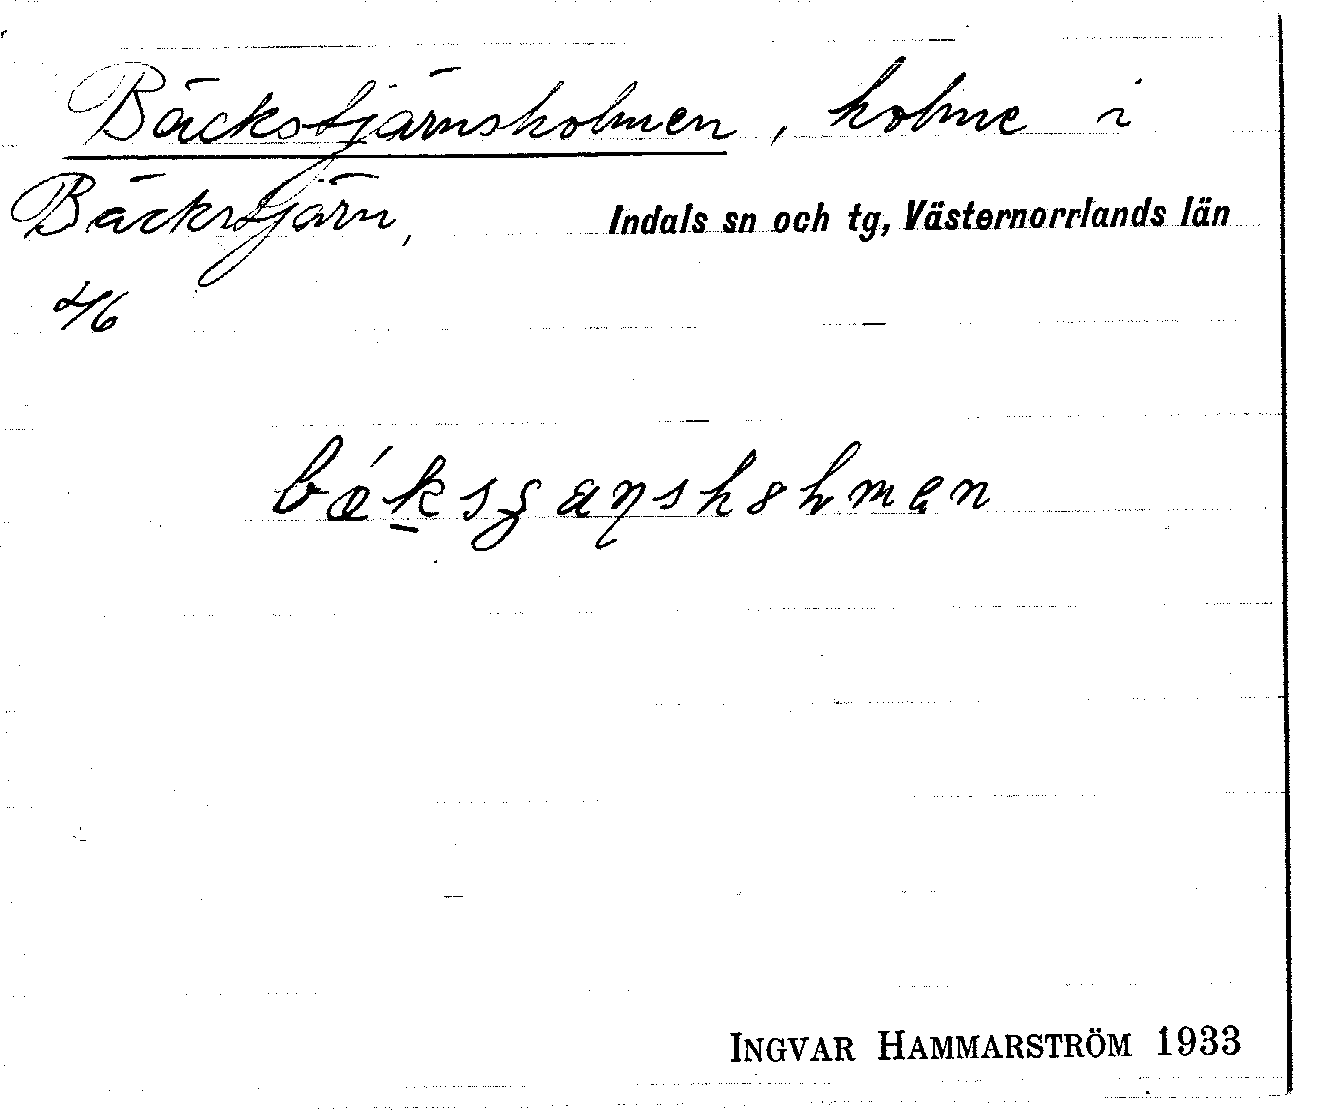 Bäckstjärnsholmen, holme i
Bäckstjärn, Indals sn och tg, Västernorrlands län
4/6
INGVAR HAMMARSTRÖM 1933